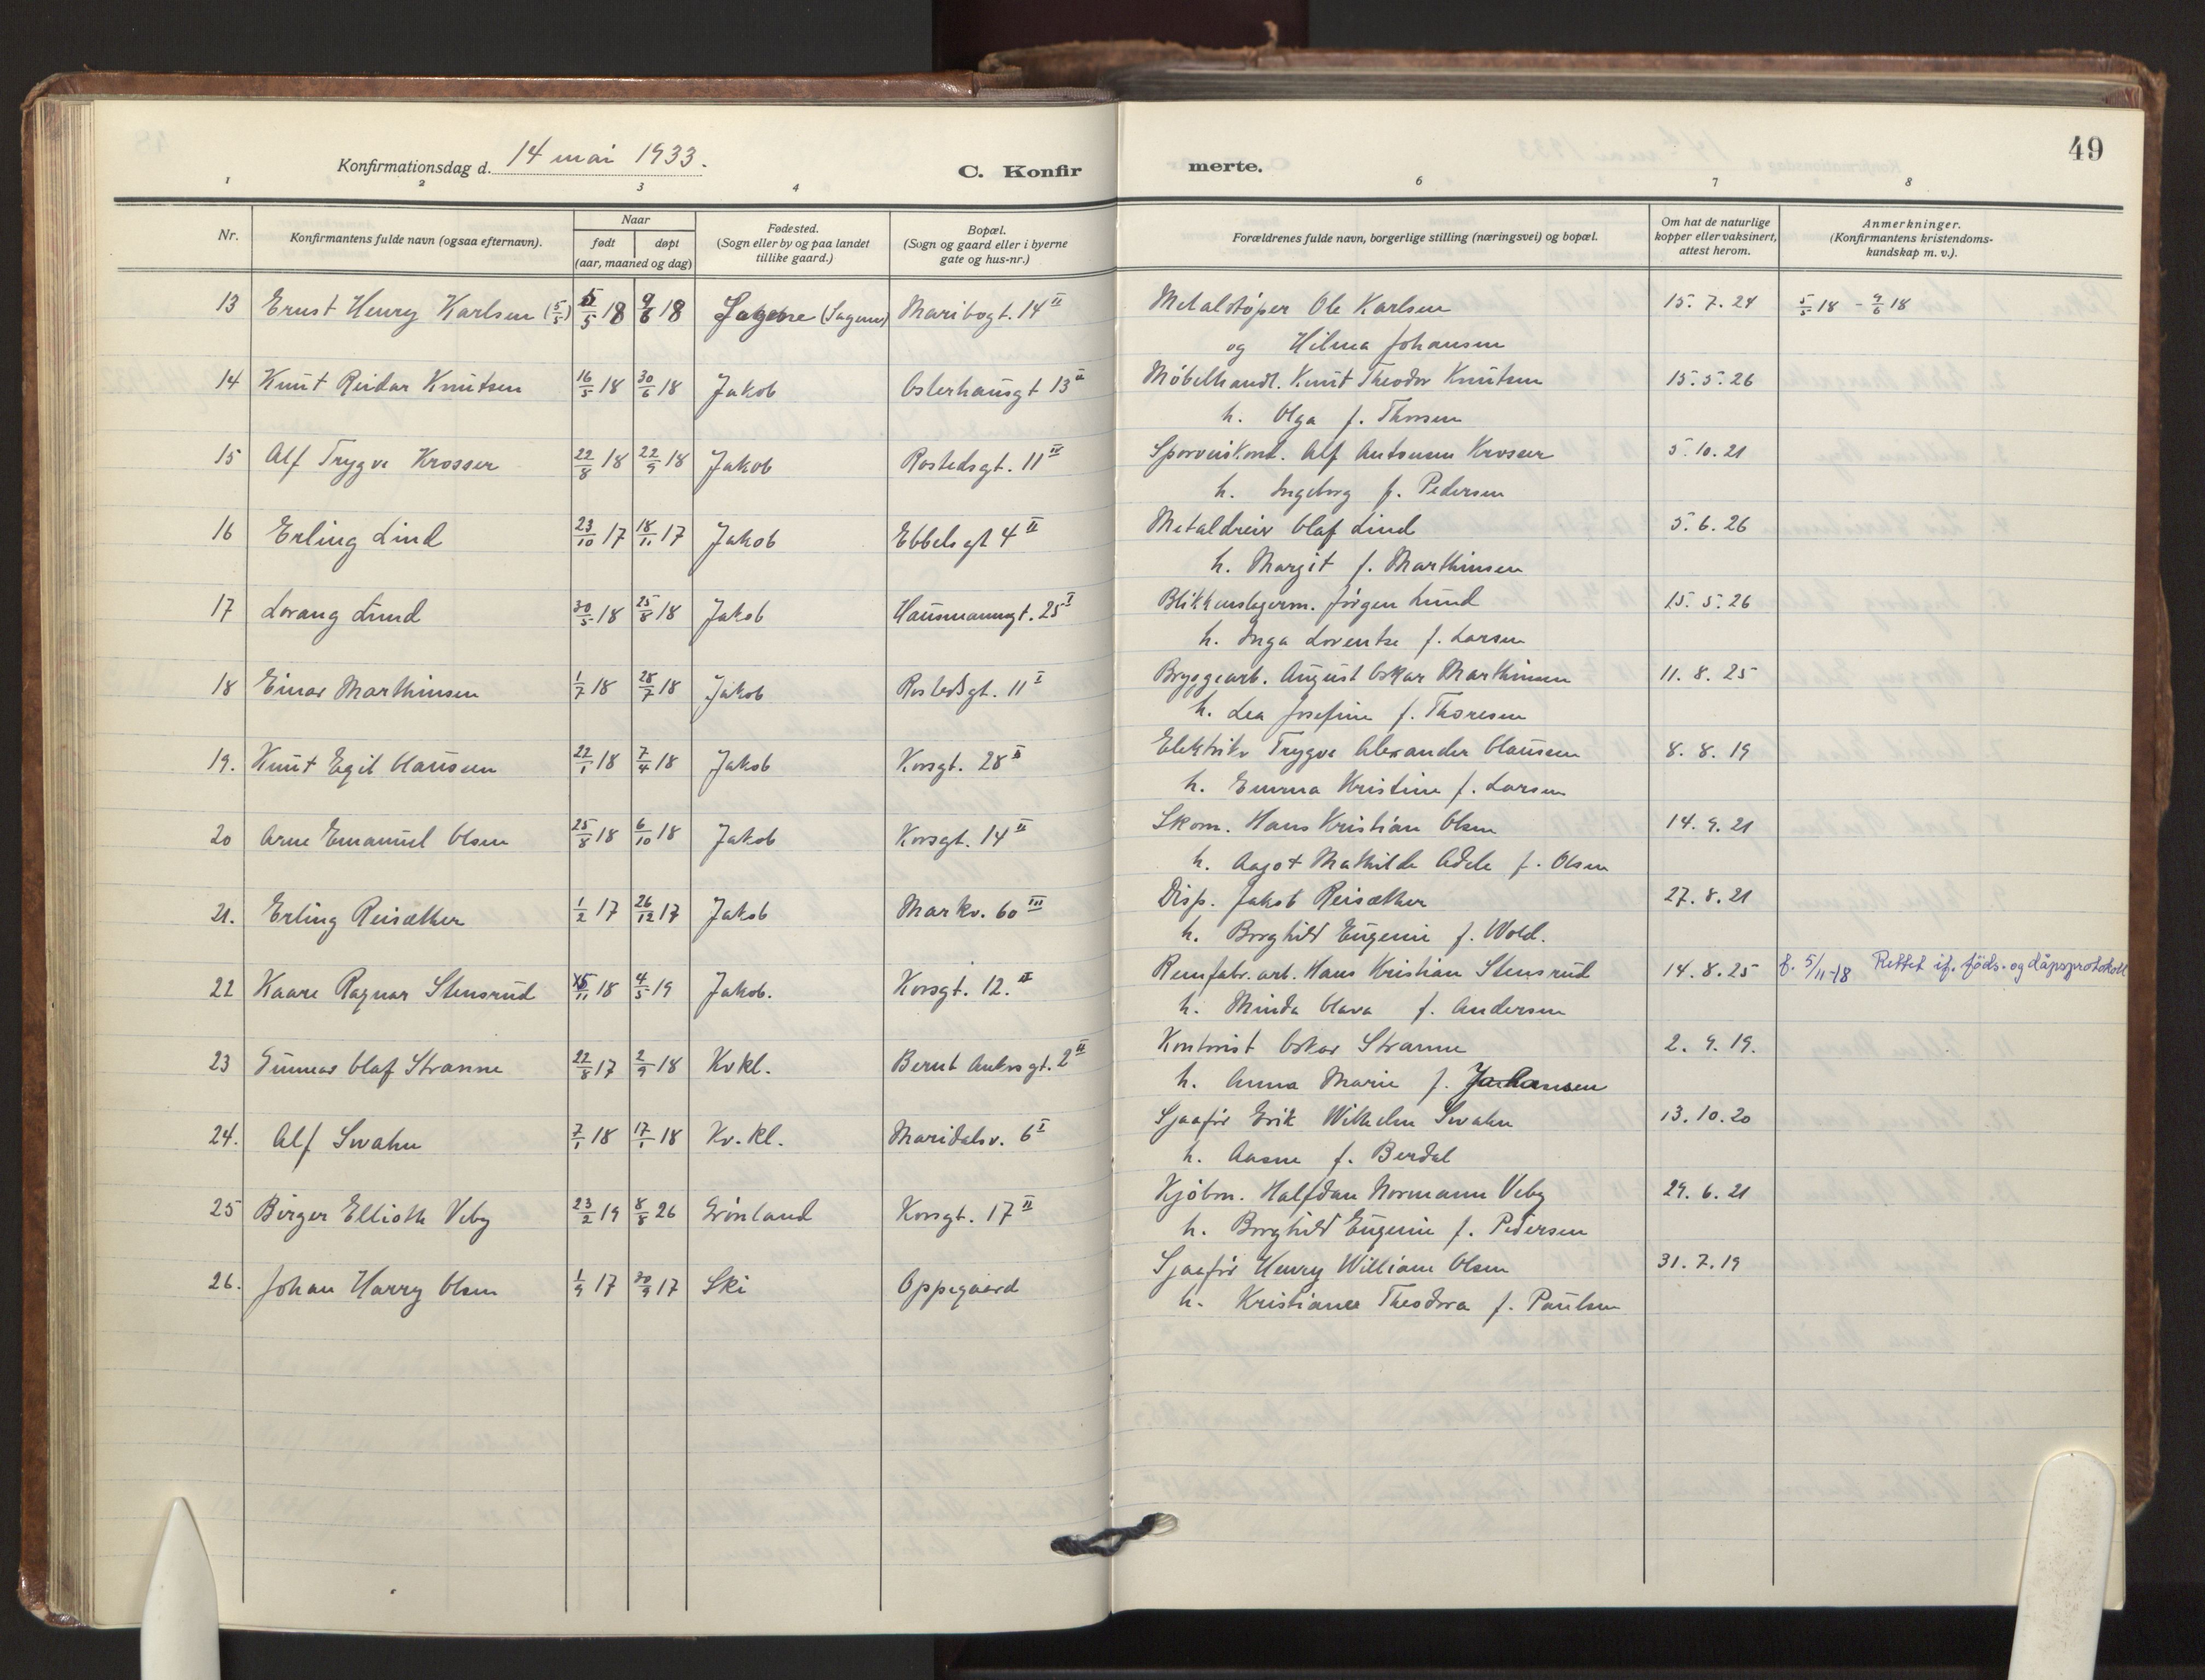 49
Konfirmationsdag d. 14 mai 1933. C. Konfirmerte.
1 2 3 4 6 7 8
Nr. Konfirmantens fulde navn (ogsaa efternavn). Naar født døpt (aar, maaned og dag) Fødested. (Sogn eller by og paa landet tillike gaard.) Bopæl. (Sogn og gaard eller i byerne gate og hus-nr.) Forældrenes fulde navn, borgerlige stilling (næringsvei) og bopæl. Om hat de naturlige kopper eller vaksinert, attest herom. Anmerkninger. (Konfirmantens kristendoms-kundskap m. v.).
13 Ernst Henry Karlsen (5/5) 5/5 18 9/6 18 Sagene (Sagene) Maribogt. 14 II Metalstøper Ole Karlsen 15. 7. 24 5/5 18 - 9/6 18
og Hilma Johansen
14 Knut Reidar Knutsen 16/5 18 30/6 18 Jakob Osterhausgt 13 II Møbelhandl. Knut Theodor Knutsen 15. 5. 26
h. Olga f. Thorsen
15 Alf Trygve Krosser 22/8 18 22/9 18 Jakob Rostedsgt. 11 II Sporveiskond. Alf Antonsen Krosser 5. 10. 21
h. Ingeborg f. Pedersen
16 Erling Lind 23/10 17 18/11 17 Jakob Ebbelsgt 4 II Metaldreier Olaf Lind 5. 6. 26
h. Margit f. Marthinsen
17 Lorang Lund 30/5 18 25/8 18 Jakob Hausmannsgt. 25 I Blikkenslagerm. Jörgen Lund 15. 5. 26
h. Inga Lorentse f. Larsen
18 Einar Marthinsen 1/7 18 28/7 18 Jakob Rostedsgt. 11 I Bryggearb. August Oskar Marthinsen 11. 8. 25
h. Lea Josefine f. Thoresen
19. Knut Egil Clausen 22/1 18 7/4 18 Jakob Korsgt. 28 II Elektrikr Trygve Alexander Clausen 8. 8. 19
h. Emma Kristine f. Larsen
20 Arne Emanuel Olsen 25/8 18 6/10 18 Jakob Korsgt. 14 II Skom. Hans Kristian Olsen 14. 9. 21
h. Aagot Mathilde Adele f. Olsen
21. Erling Reisæther 1/2 17 26/12 17 Jakob Markv. 60 III Disp. Jakob Reisæther 27. 8. 21
h. Borghild Eugenie f. Wold.
22 Kaare Ragnar Stensrud 5/11 18 4/5 19 Jakob. Korsgt. 12. II Remfabr. arb. Hans Kristian Stensrud 14. 8. 25 f. 5/11-18 Rettet if. föds- og dåpsprotokoll
h. Minda Olava f. Andersen
23 Gunnar Olaf Stranne 22/8 17 2/9 18 Kvkl. Bernt Ankersgt. 2 II Kontorist Oskar Stranne 2. 9. 19.
h. Anna Marie f. Johansen
24. Alf Swahn 7/1 18 17/1 18 Kv. kl. Maridalsv. 6 I Sjaafør Erik Wilhelm Swahn 13. 10. 20
h. Aasne f. Berdal
25 Birger Ellioth Veby 23/2 19 8/8 26 Grönland Korsgt. 17 II Kjöbm. Halfdan Normann Veby 29. 6. 21
h. Borghild Eugenie f. Pedersen
26. Johan Harry Olsen 1/9 17 30/9 17 Ski Oppegaard Sjaafør Henry William Olsen 31. 7. 19
h. Kristianea Theodora f. Paulsen